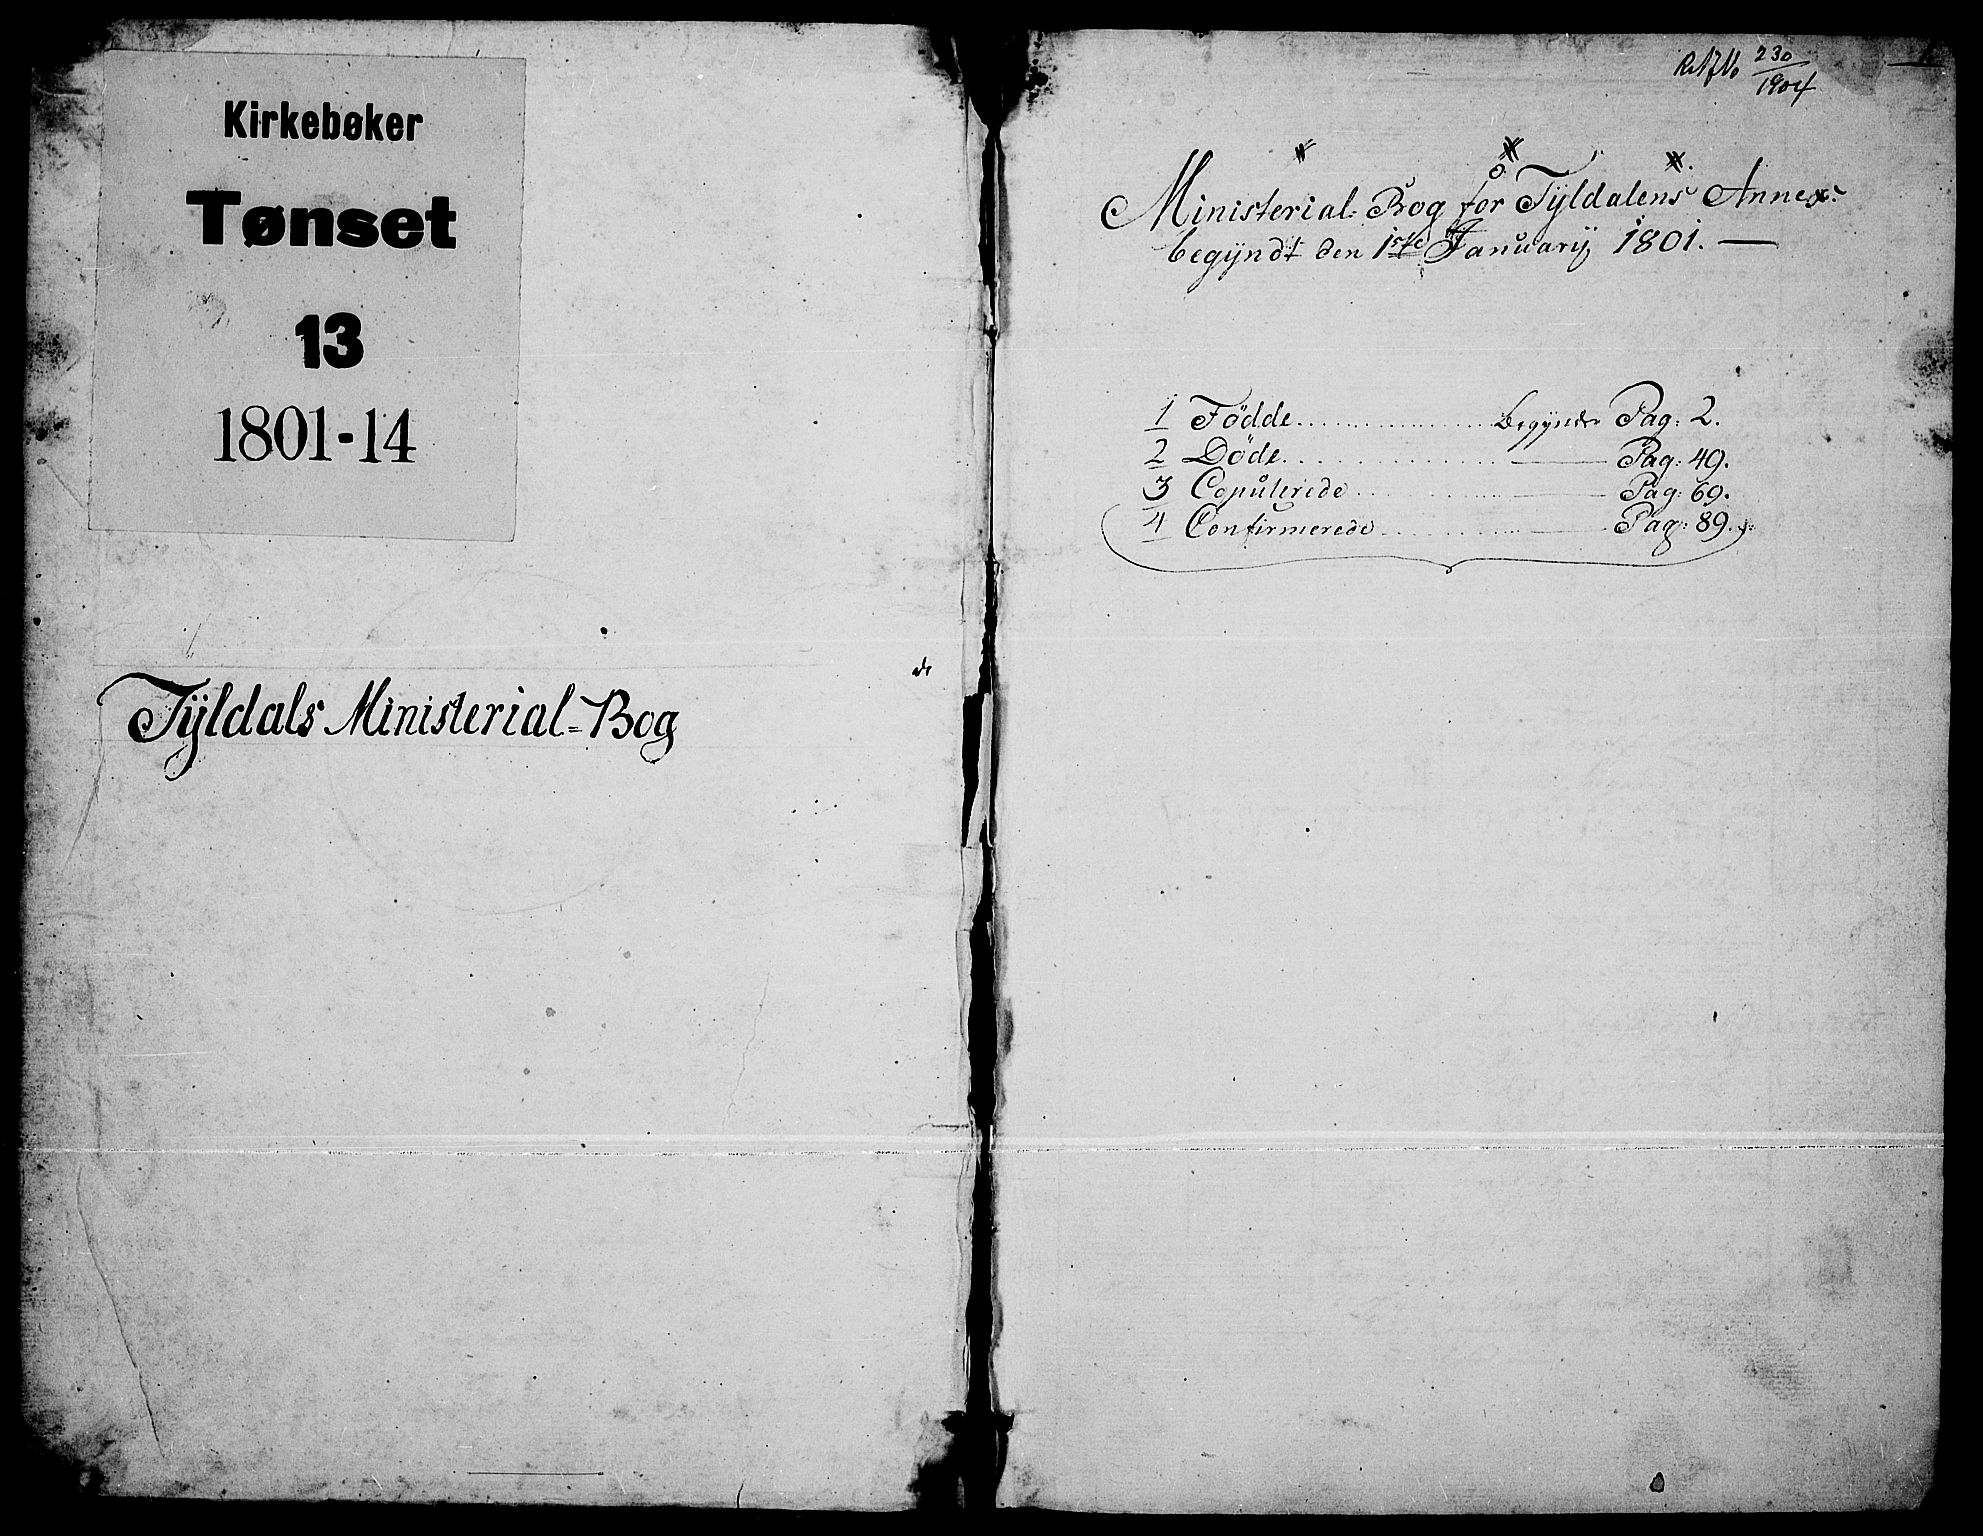 Kirkebøker
Tønset
13
1801-14
Tÿldals Ministerial=Bog
230
1904
Ministerial-Bog for Tÿldalens Annex
begÿndt den 1ste Januarÿ 1801. —
1 Födde.................... begÿnder Pag: 2.
2 Döde.................... — Pag: 49.
3 Copulerede.................... — Pag: 69.
4 Confirmerede.................... — Pag: 89.